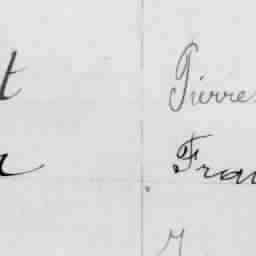 t Pierre
r Fra